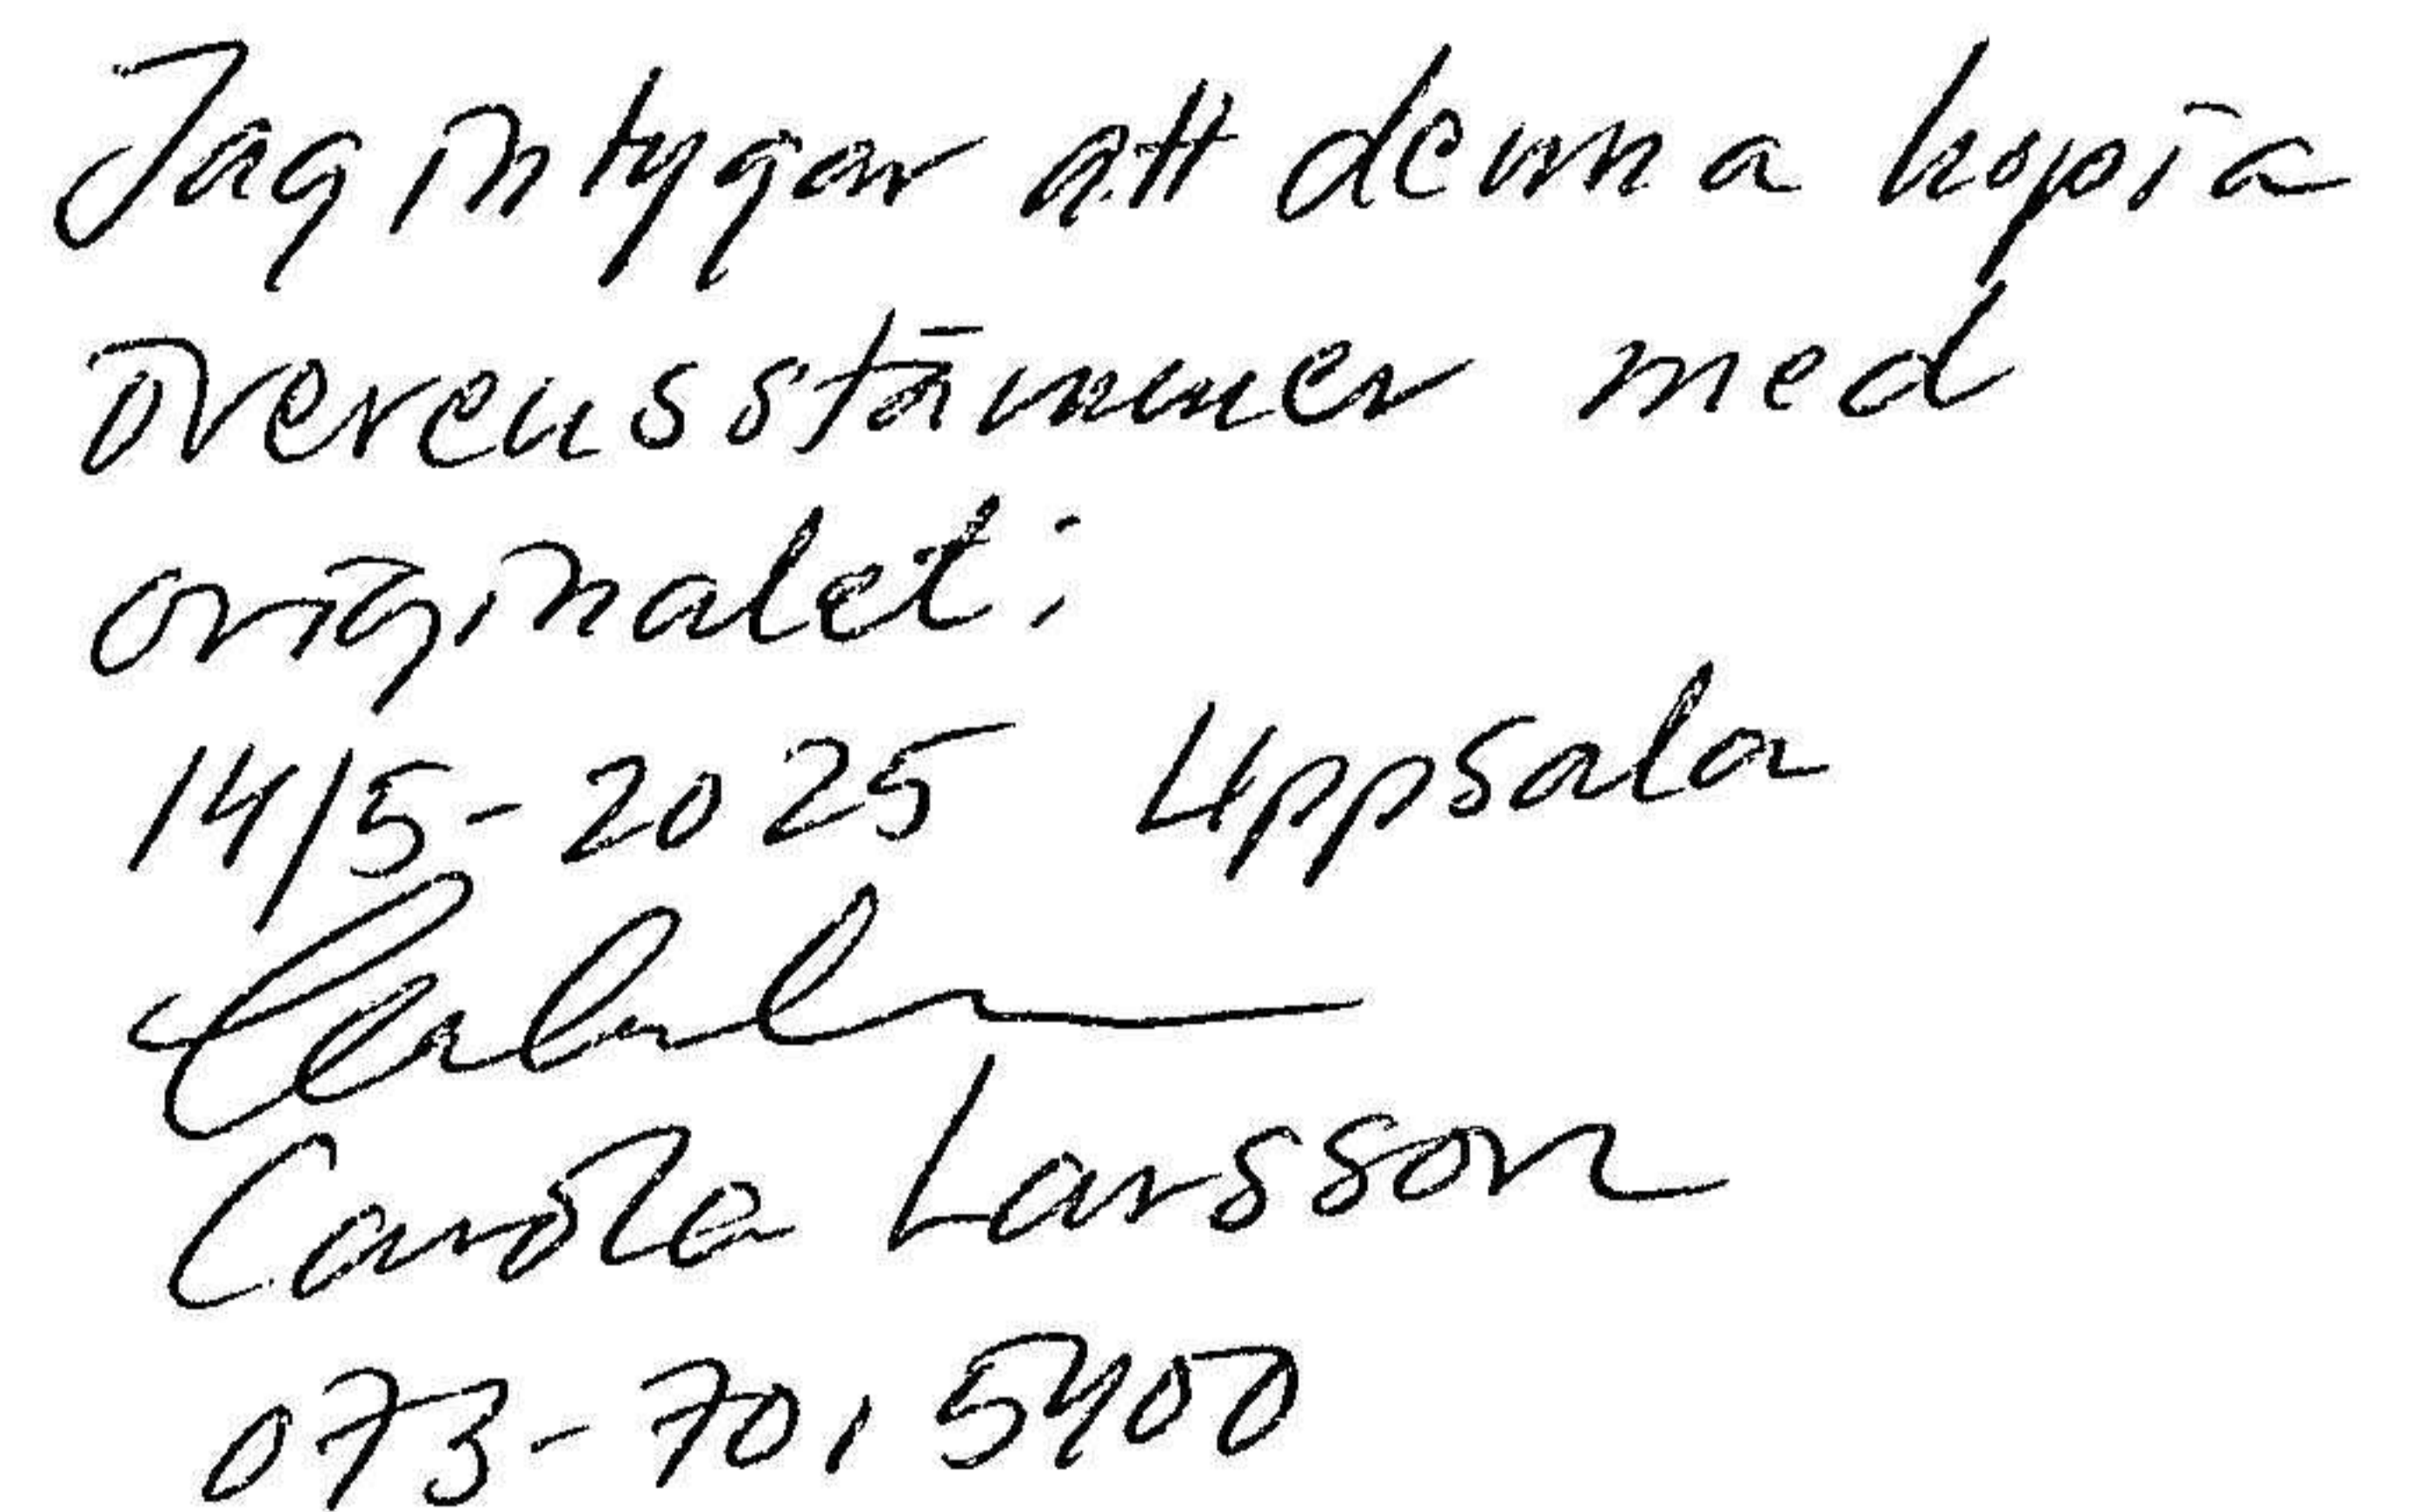 Jag intygar att denna kopia
överensstämmer med
originalet:
14/5-2025 Uppsala
Carola Larsson
073-701 5400